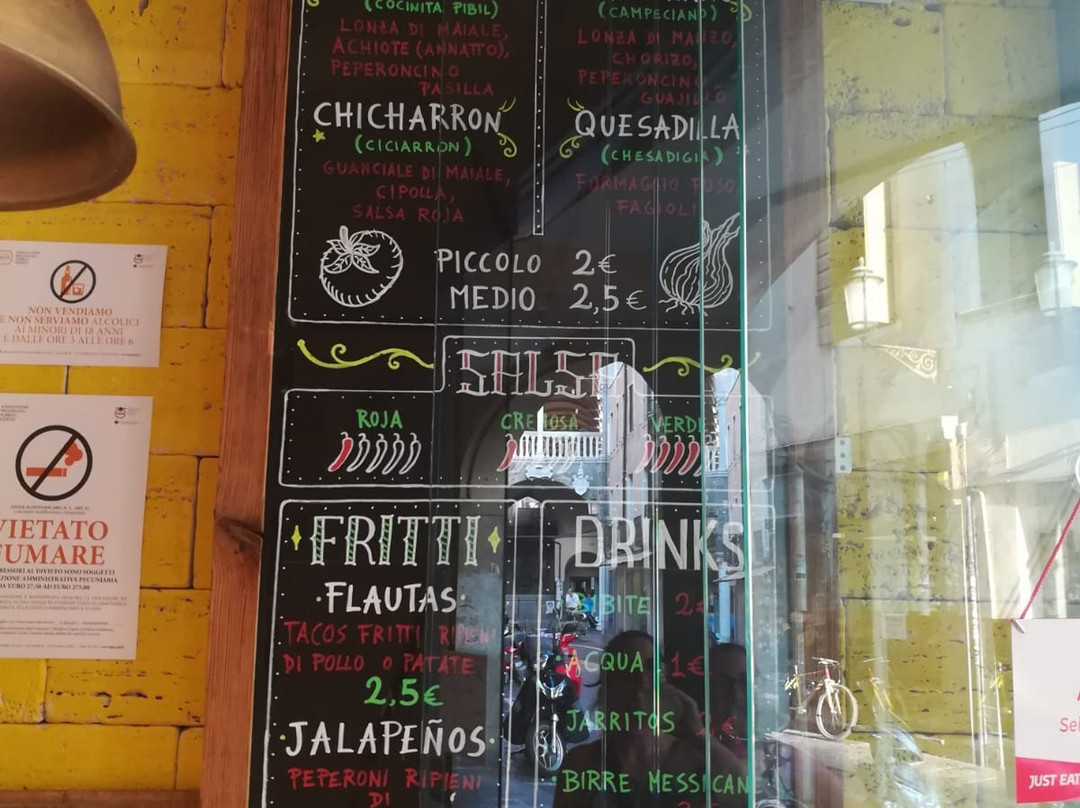 (COCINITA PIBIL)
LONZA DI MAIALE,
ACHIOTE (ANNATTO),
PEPERONCINO
PASILLA
CHICHARRON
(CICIARRON)
GUANCIALE DI MAIALE,
CIPOLLA,
SALSA ROJA
(CAMPECIANO)
LONZA DI MANZO,
CHORIZO,
PEPERONCINO
GUAJILLO
QUESADILLA
(CHESADIGIA)
FORMAGGIO FUSO,
FAGIOLI
PICCOLO 2€
MEDIO 2,5€
SALSA
ROJA
CREMOSA
VERDE
FRITTI
FLAUTAS
TACOS FRITTI RIPIENI
DI POLLO O PATATE
2,5€
JALAPEÑOS
PEPERONI RIPIENI
DI
DRINKS
BIBITE 2€
ACQUA 1€
JARRITOS €
BIRRE MESSICAN
NON VENDIAMO
E NON SERVIAMO ALCOLICI
AI MINORI DI 18 ANNI
E DALLE ORE 3 ALLE ORE 6
VIETATO
FUMARE
JUST EAT